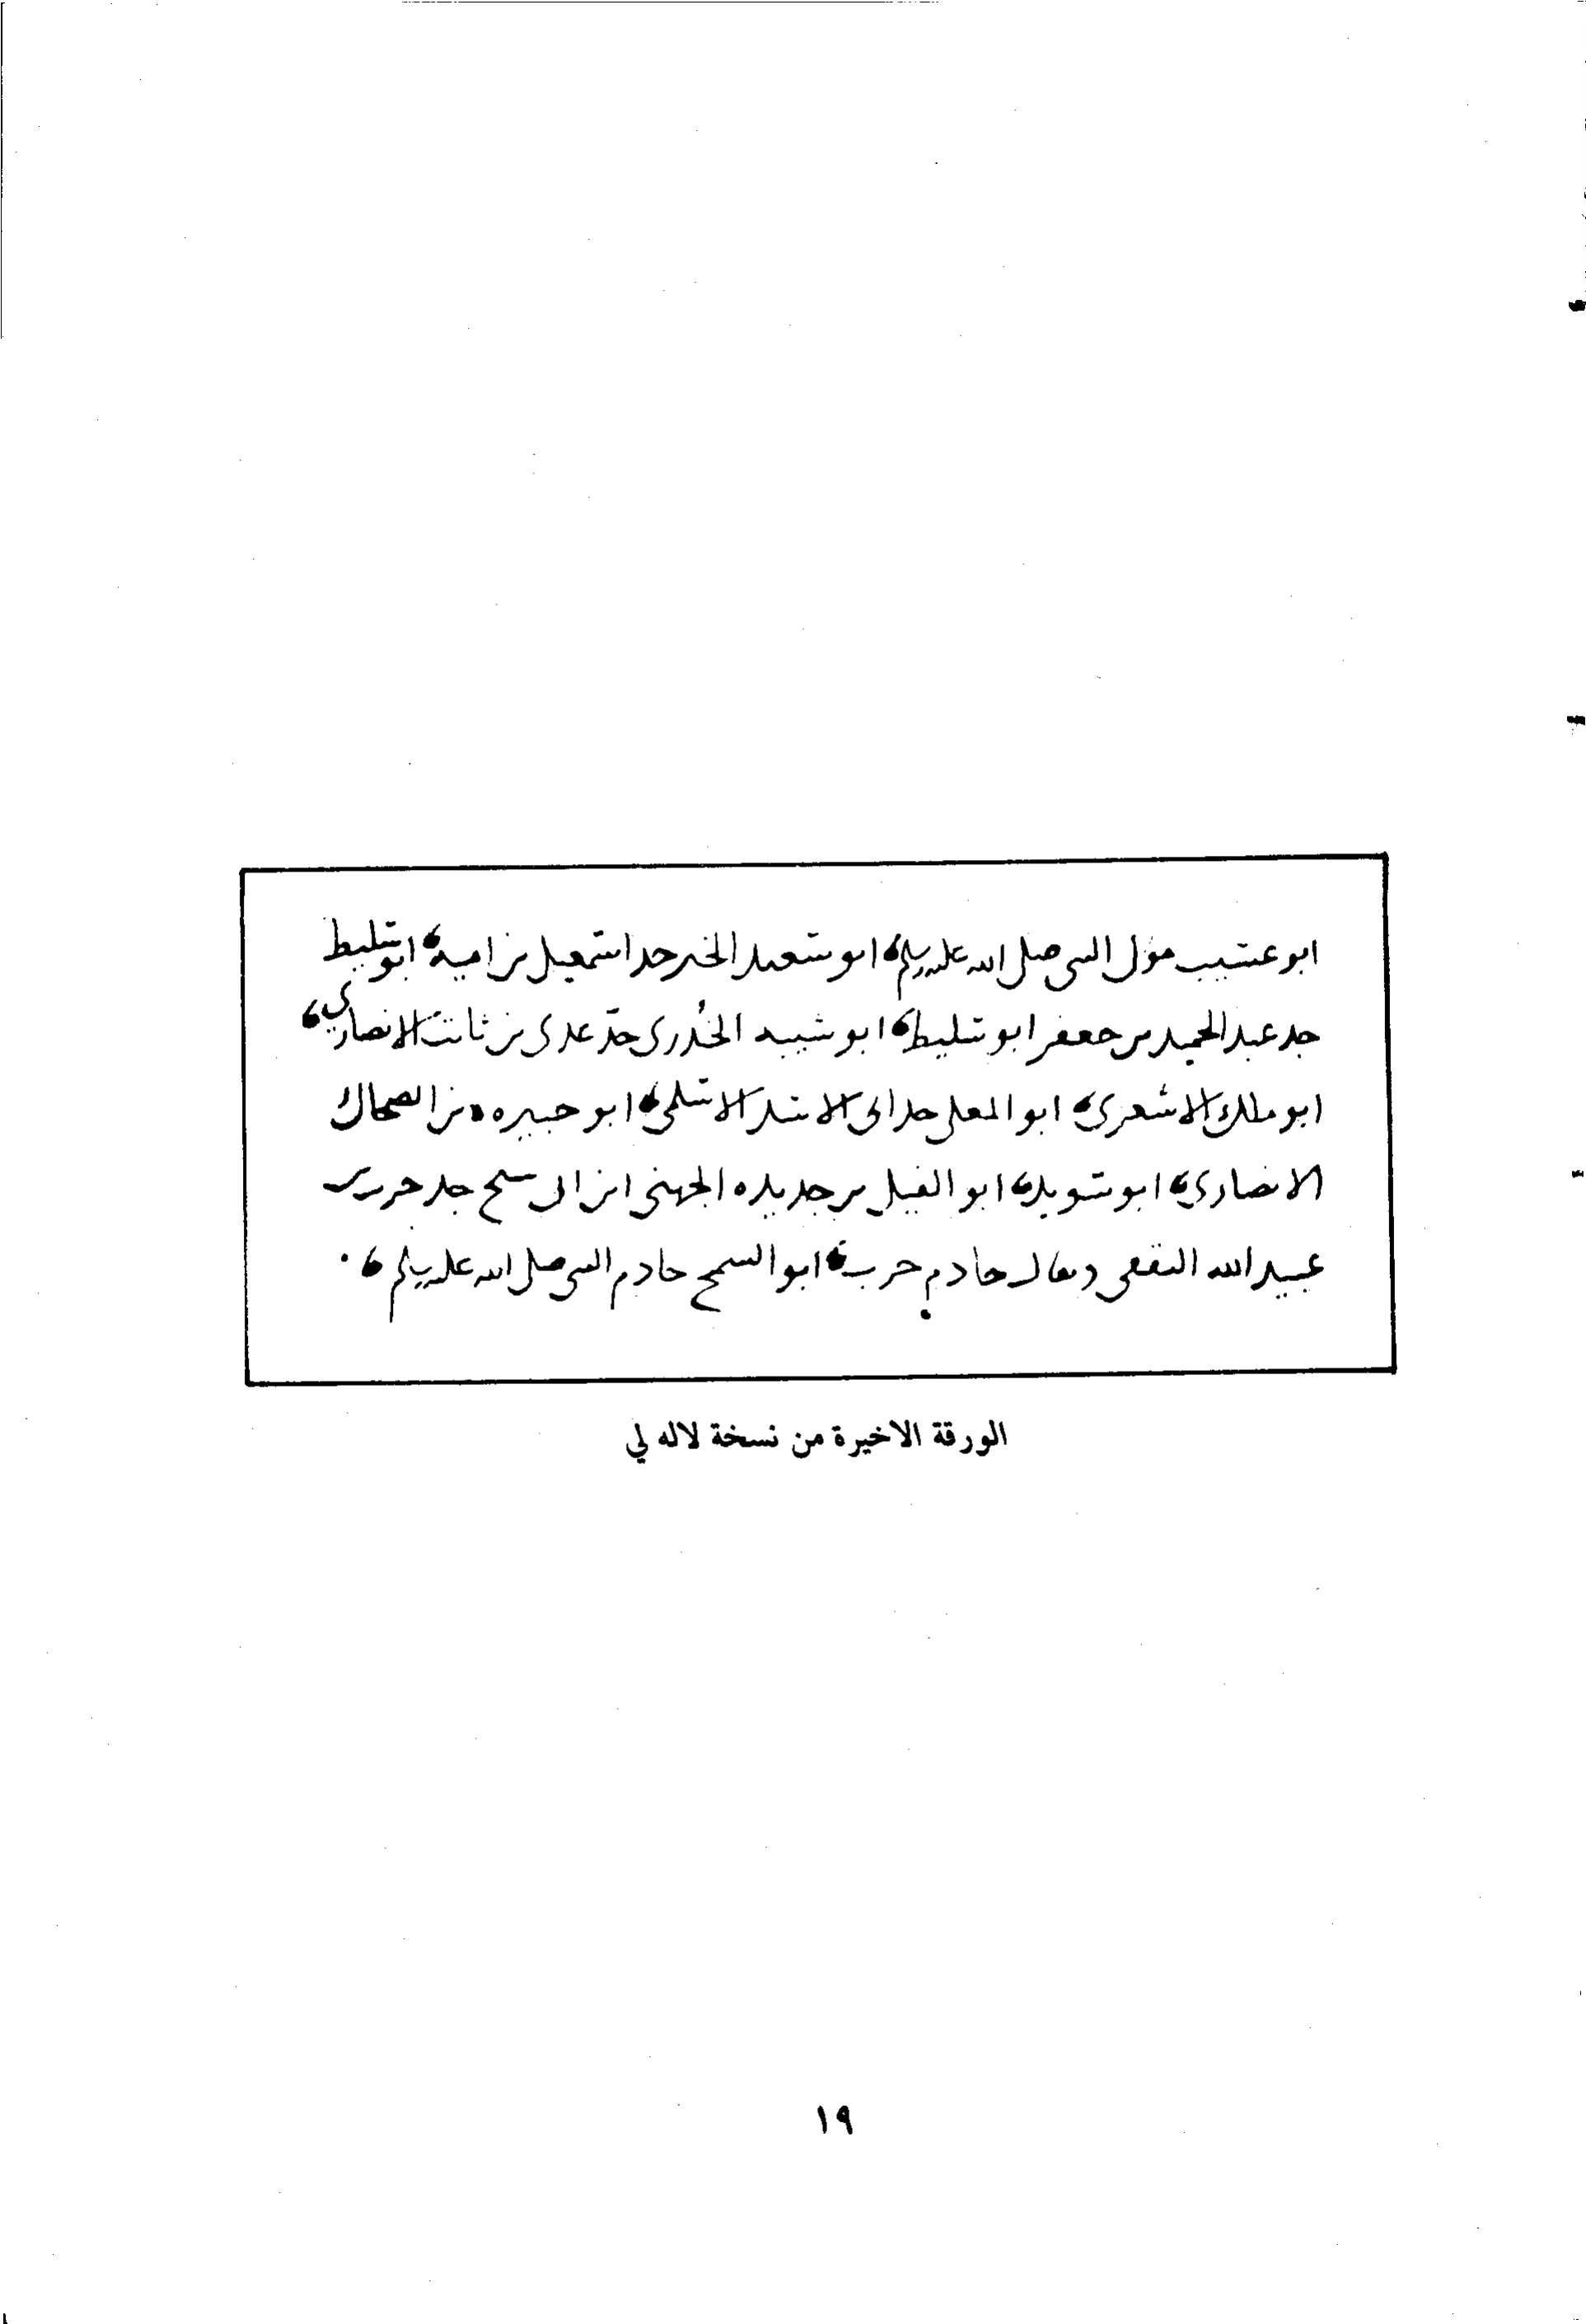 ابو عسيب مولى النبى صلى الله عليه وسلم، ابو سعيد الخير جد اسمعيل بن امية، ابو سليط
جد عبد الحميد بن جعفر ابو سليط، ابو شيبه الخدرى جد عدى بن ثابت الانصاري،
ابو ملك الاشعرى، ابو المعلى جد ابى الاسد الاسلمى، ابو جبيره بن الضحاك
الانصاري، ابو سويد، ابو الفيل بن جديده الجهنى ابن ابى جد حرب بن
عبيد الله الثقفى ويقال خادم حرب، ابو السمح خادم النبى صلى الله عليه وسلم،
الورقة الاخيرة من نسخة لاله لي
١٩